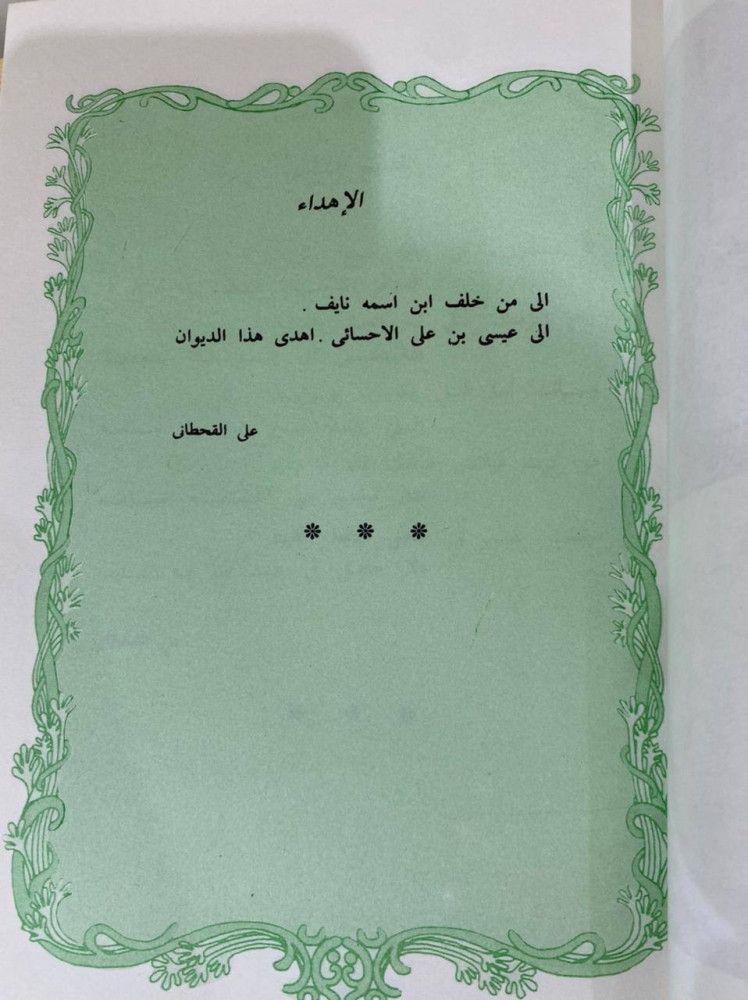 الإهداء
الى من خلف ابن اسمه نايف .
الى عيسى بن على الاحسائى . اهدى هذا الديوان
على القحطانى